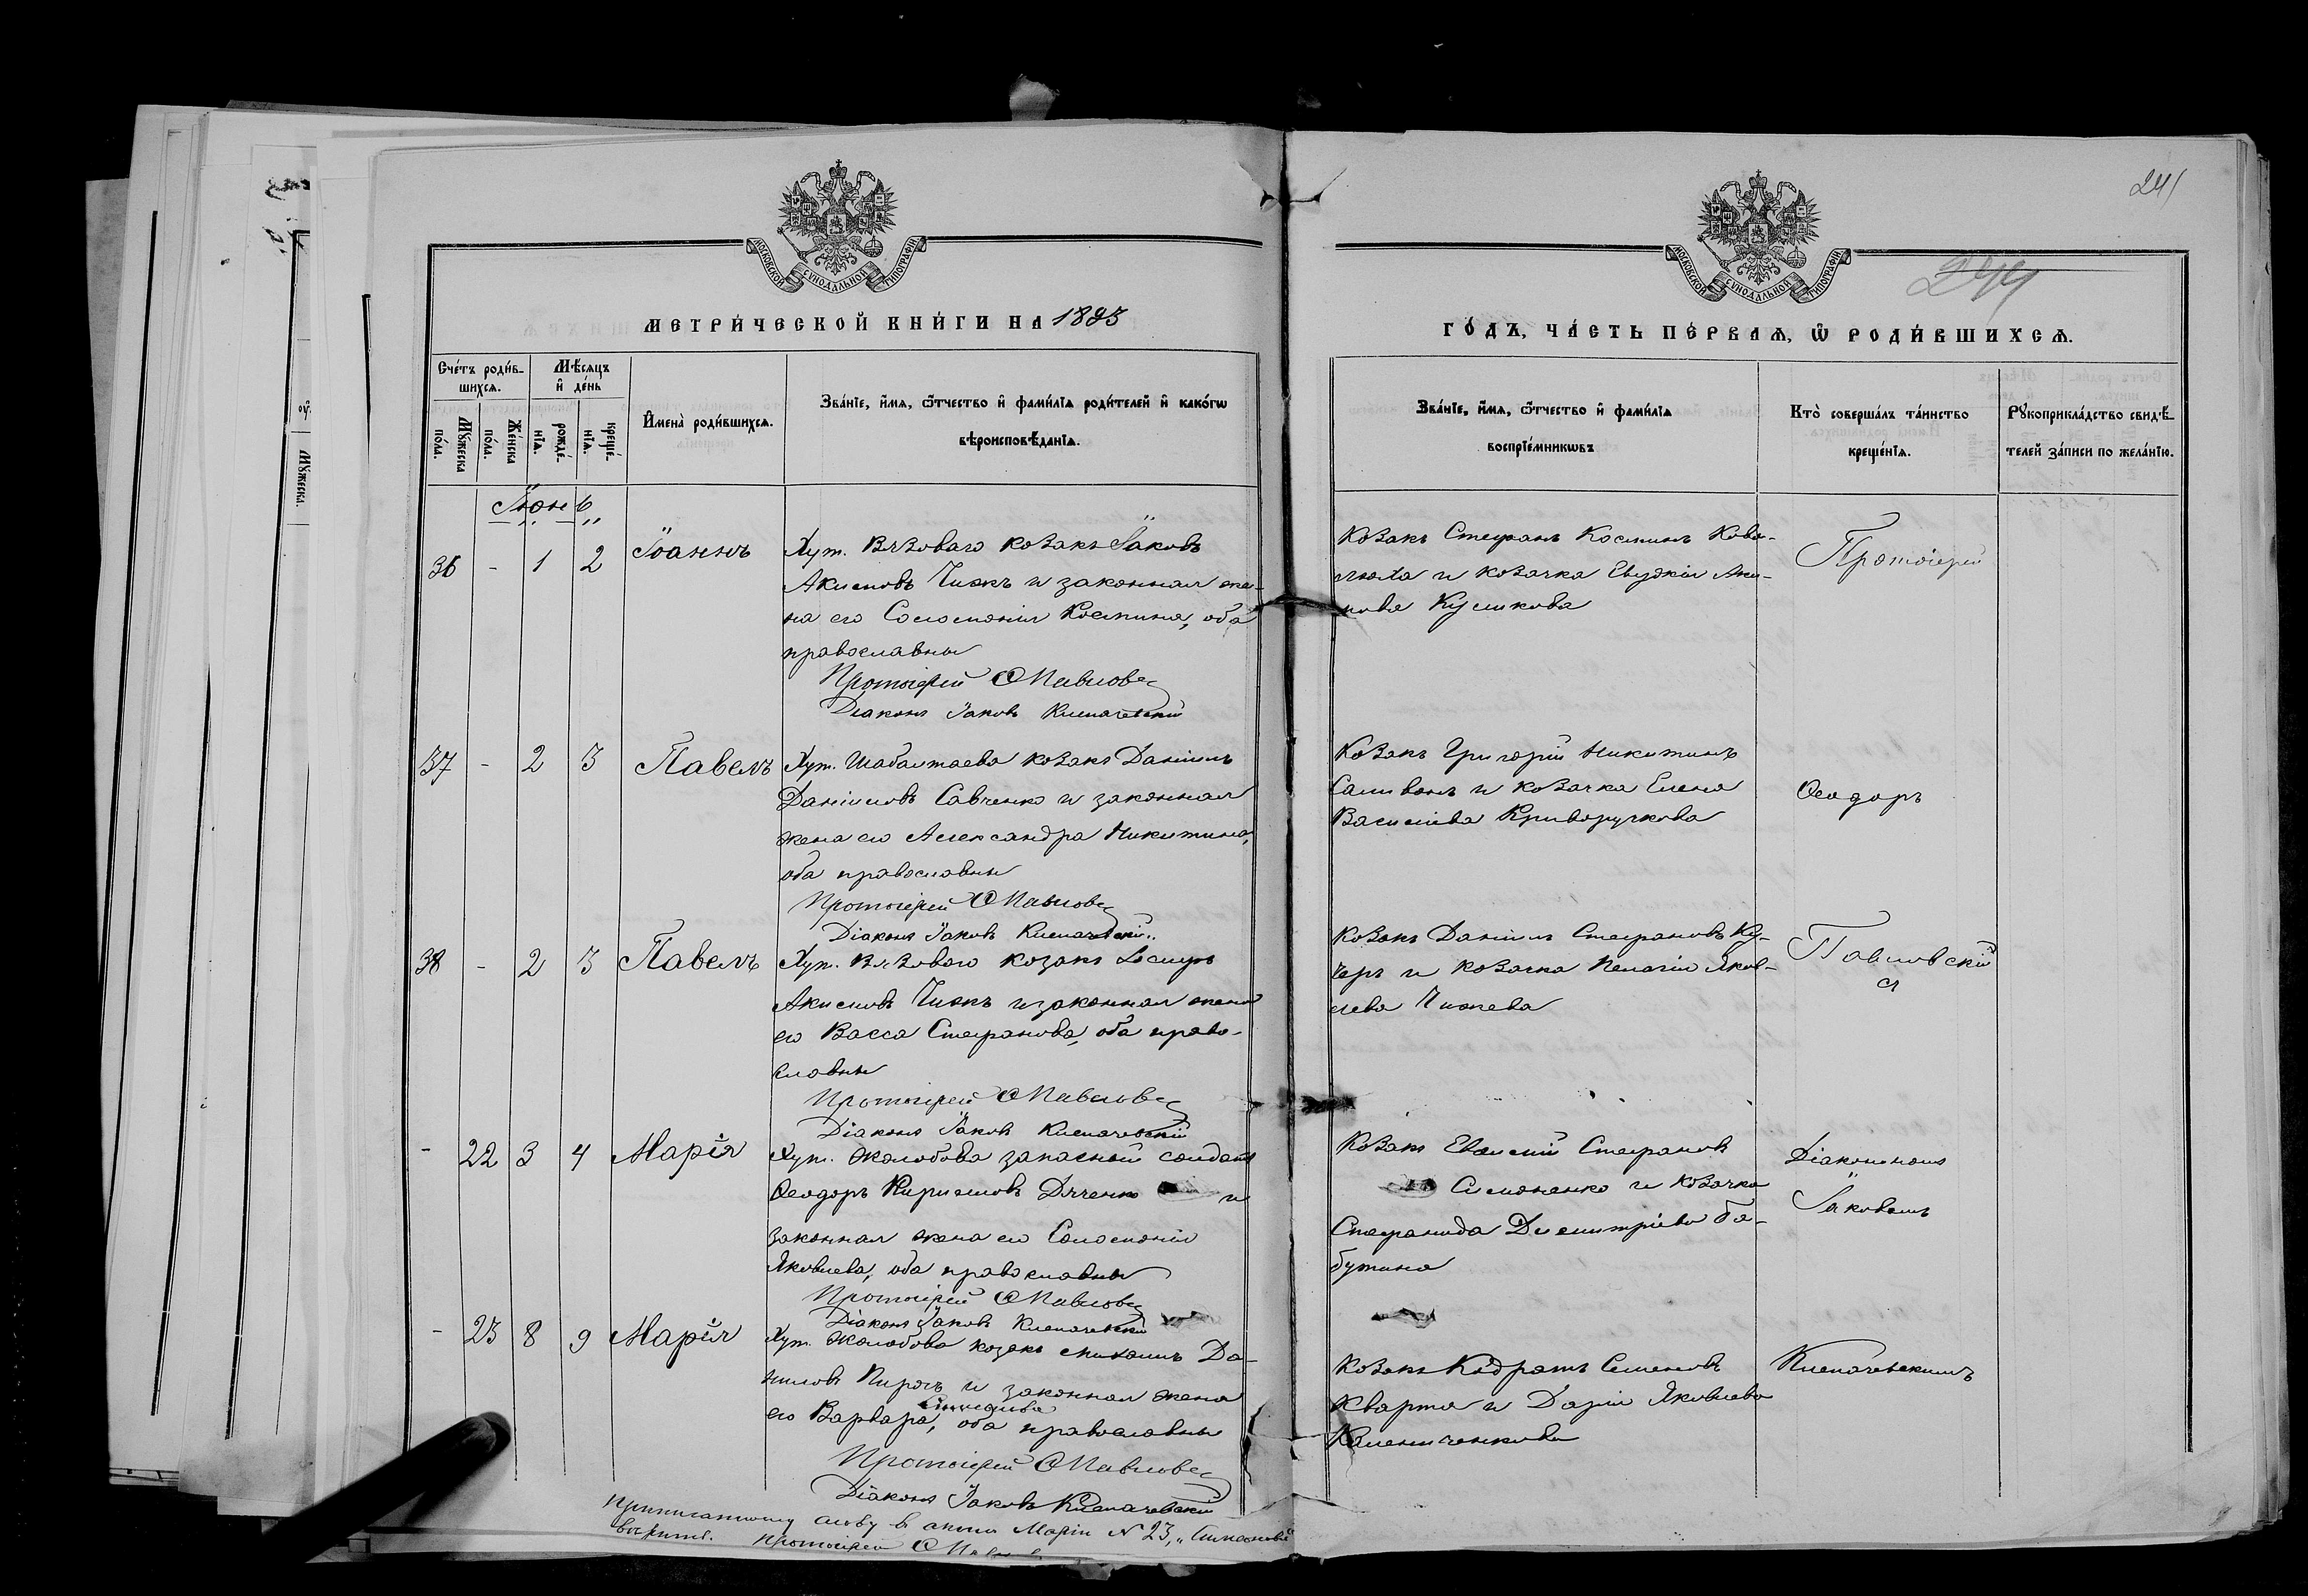 241
244
МОСКОВСКОЙ СѴНОДАЛЬНОЙ ТИПОГРАФІИ
МОСКОВСКОЙ СѴНОДАЛЬНОЙ ТИПОГРАФІИ
МЕТРИ́ЧЕСКОЙ КНИ́ГИ НА 1893
ГО́ДЪ, ЧА́СТЬ ПЕ́РВАЯ, Ѡ РОДИ́ВШИХСЯ.
Сче́тъ роди́в-
шихся.
Мѣсяцъ
и҆ де́нь
Мꙋжеска по́ла.
Же́нска по́ла.
рожде́-нїя.
креще́-нїя.
И҆мена̀ роди́вшихся.
Зва́нїе, и҆́мя, ѻ҆́тчество и҆ фами́лїя роди́телей и҆ како́гѡ
вѣроисповѣ́данїя.
Зва́нїе, и҆́мя, ѻ҆́тчество и҆ фами́лїя
воспрїе́мникѡвъ
Кто̀ соверша́лъ та́инство
креще́нїя.
Рꙋкоприкла́дство свидѣ́-
телей за́писи по жела́нїю.
Іюнь
36 - 1 2 Іоаннъ
Хут. Вязоваго козакъ Іаковъ
Акимовъ Чижъ и законная же-
на его Соломонія Космина, оба
православны
Протоіерей Ѳ Павловс
Діаконъ Іаковъ Клепачевскій
Козакъ Стефанъ Косминъ Кова-
люха и козачка Евдокія Аки-
мова Куликова
Протоіерей
37 - 2 3 Павелъ
Хут. Шабалтаева козакъ Даніилъ
Даніиловъ Савченко и законная
жена его Александра Никитина,
оба православны
Протоіерей Ѳ Павловс
Діаконъ Іаковъ Клепачевскій
Козакъ Григорій Никитинъ
Саливонъ и козачка Елена
Василіева Криворучкова
Ѳеодоръ
38 - 2 3 Павелъ
Хут. Вязоваго козакъ Іосифъ
Акимовъ Чижъ и законная жена
его Васса Стефанова, оба право-
славны
Протоіерей Ѳ Павловс
Діаконъ Іаковъ Клепачевскій
Козакъ Даніилъ Стефановъ Ку-
черъ и козачка Пелагія Яков-
лева Чижева
Павловскій
- 22 3 4 Марія
Хут. Жолобова запасный солдатъ
Ѳеодоръ Кирилловъ Дяченко и
законная жена его Соломонія
Яковлева, оба православны
Протоіерей Ѳ Павловс
Діаконъ Іаковъ Клепачевскій
Козакъ Евфимій Стефановъ
Симоненко и козачка
Стефанида Димитріева Ба-
бутина
Діакономъ
Іаковомъ
- 23 8 9 Марія
Хут. Жолобова козакъ Михаилъ Да-
ниловъ Пирогъ и законная жена
его Варвара, оба православны
Протоіерей Ѳ Павловс
Діаконъ Іаковъ Клепачевскій
Козакъ Кодратъ Семеновъ
Кварта и Дарія Яковлева
Калениченкова
Клепачевскимъ
Приписанному слову в актѣ Маріи N 23,
вѣрить. Протоіерей Ѳ